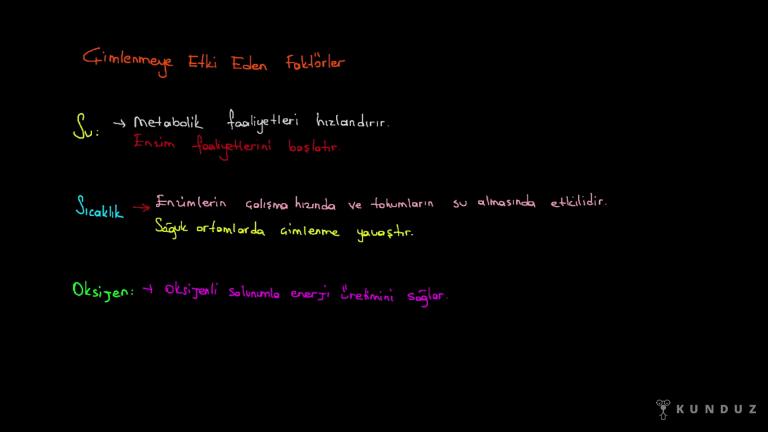 Çimlenmeye Etki Eden Faktörler
Su: → Metabolik faaliyetleri hızlandırır.
Enzim faaliyetlerini başlatır.
Sıcaklık → Enzimlerin çalışma hızında ve tohumların su almasında etkilidir.
Soğuk ortamlarda çimlenme yavaştır.
Oksijen: → Oksijenli solunumla enerji üretimini sağlar.
KUNDUZ